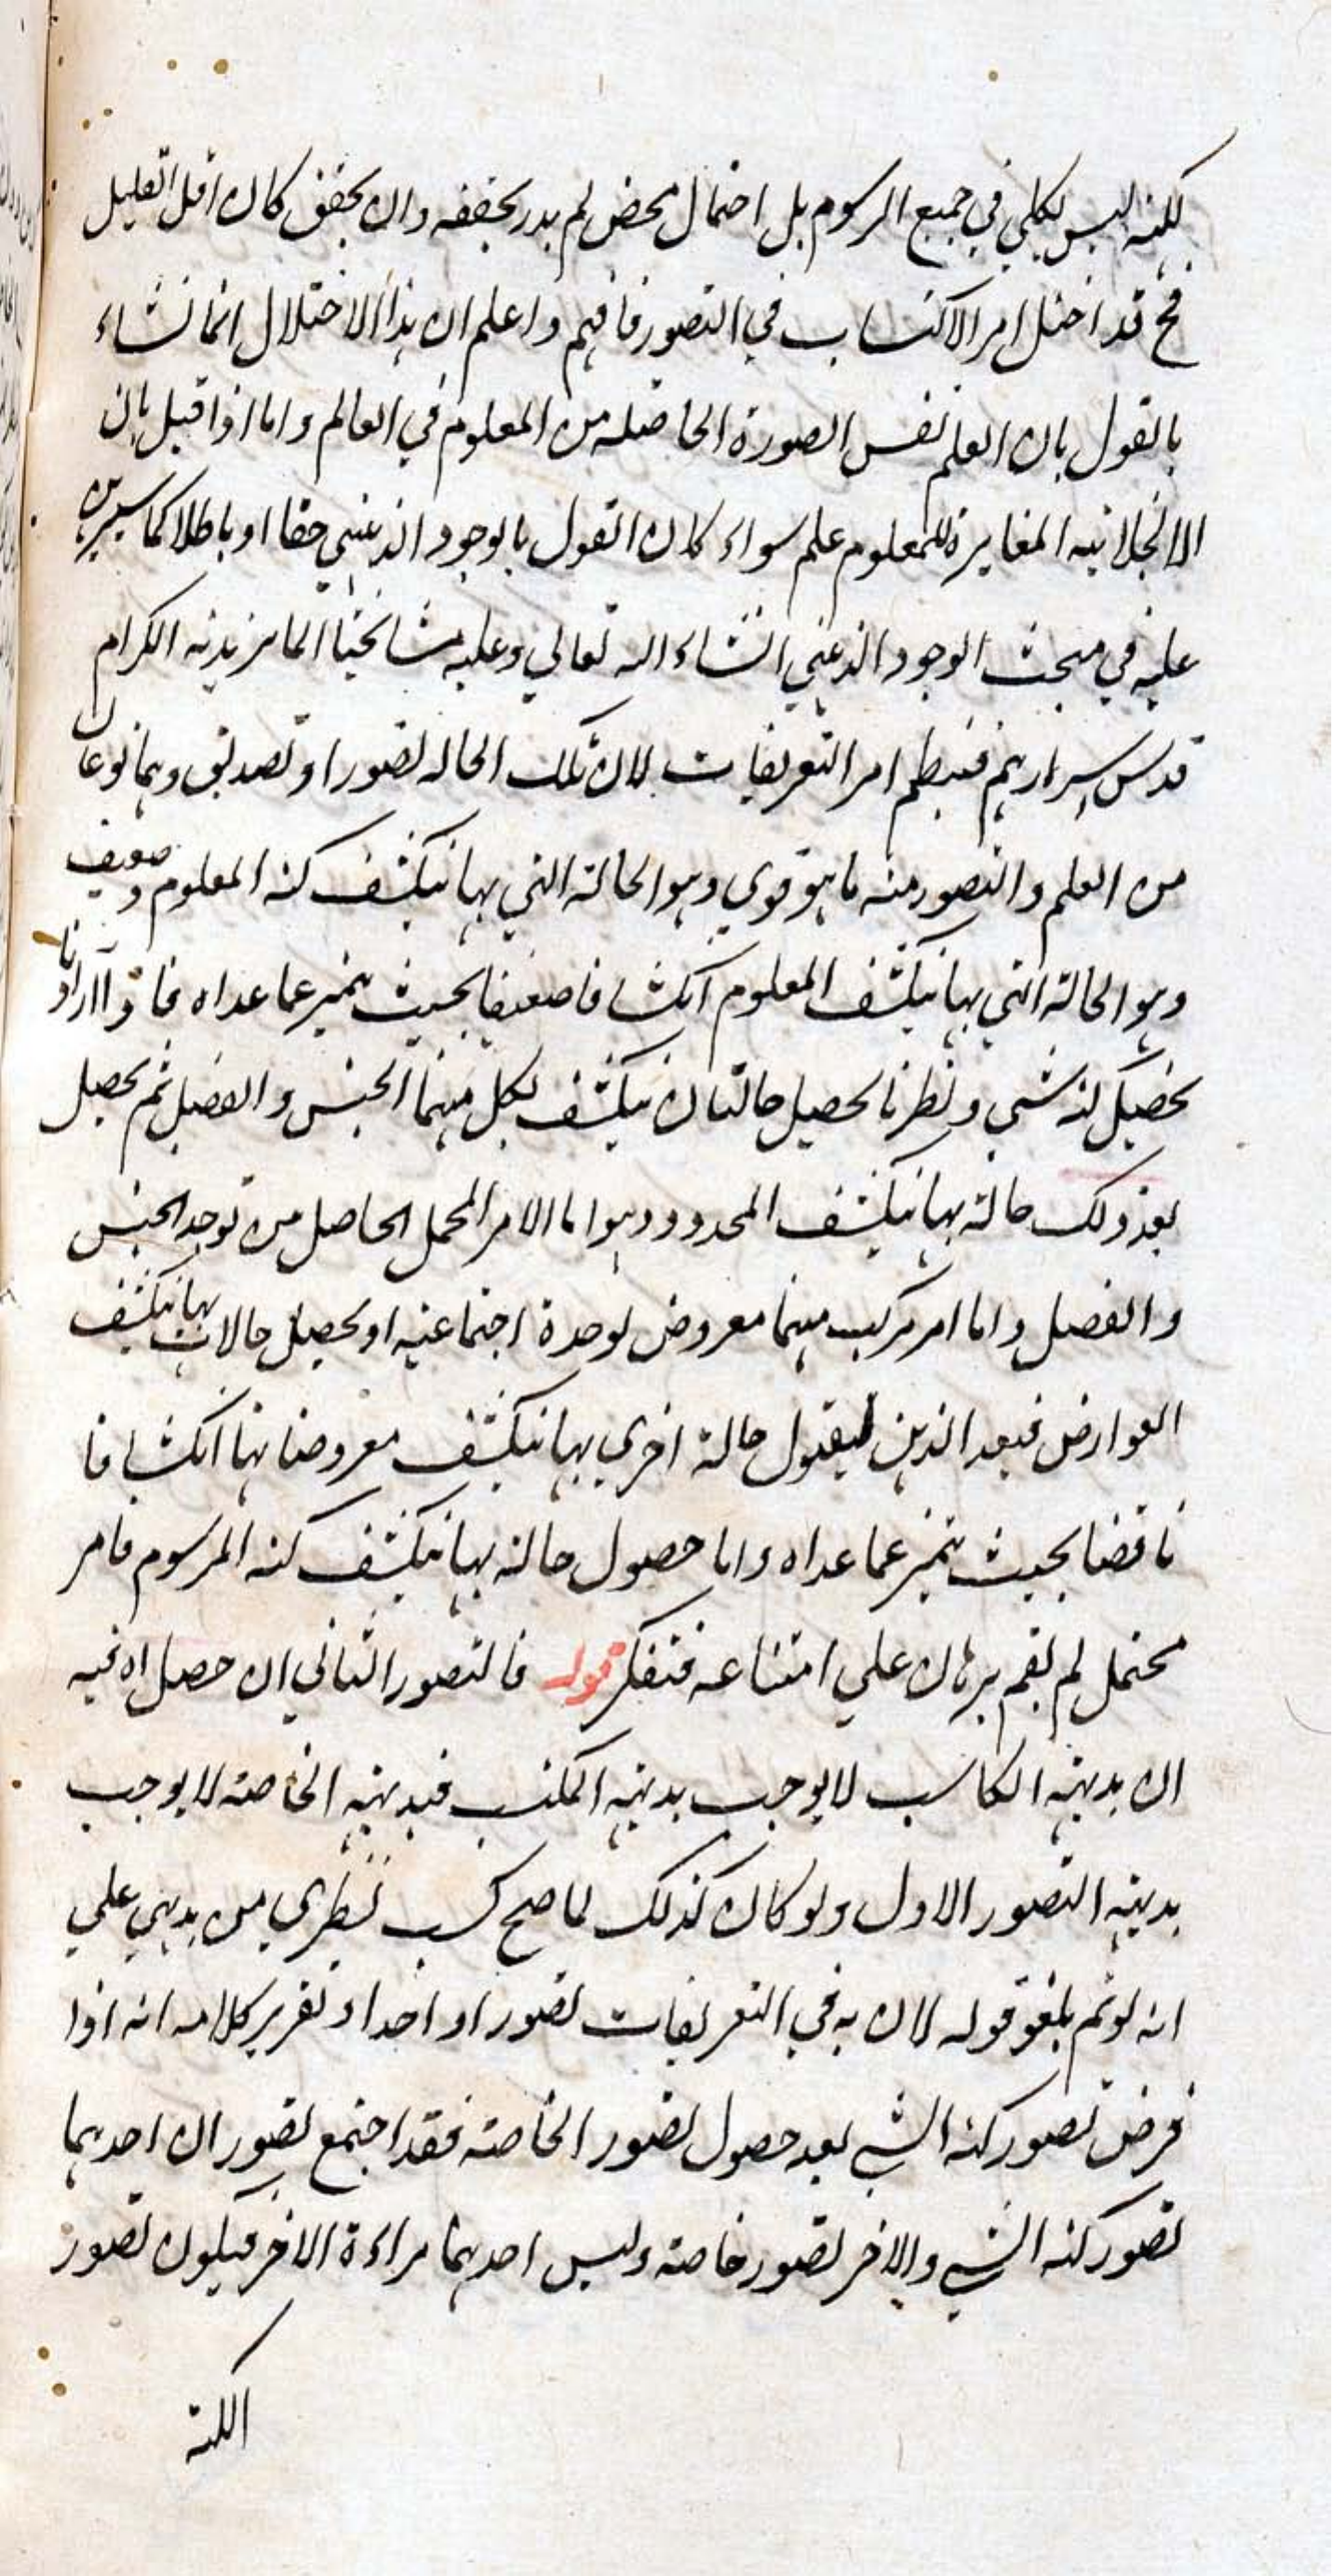 لكنه ليس بكلي في جميع الرسوم بل احتمال محض لم يدر تحققه وان تحقق كان اقل القليل
فح قد اختل امر الاكتساب في التصور فافهم واعلم ان هذا الاختلال انما نشاء
بالقول بان العلم نفس الصورة الحاصلة من المعلوم في العالم واما اذا قيل بان
الانجلائيه المغايرة للمعلوم علم سواء كان القول بالوجود الذهني حقا او باطلا كما سيبرهن
عليه في مبحث الوجود الذهني انشاء الله تعالي وعليه مشائخنا الماتريديه الكرام
قدس اسرارهم فينظم امر التعريفات لان تلك الحاله تصور او تصديق وهما نوعان
من العلم والتصور منه ما هو قوي وهو الحالة التي بها ينكشف كنه المعلوم وضعيف
وهو الحالة التي بها ينكشف المعلوم انكشافا ضعيفا بحيث يتميز عما عداه فاذا اردنا
تحصيل كنه شي ونظرنا تحصيل حالتان ينكشف بكل منهما الجنس والفصل ثم يحصل
بعد ذلك حالة بها ينكشف المحدود وهو اما الامر المجمل الحاصل من توحد الجنس
والفصل واما امر مركب منهما معروض لوحدة اجتماعيه او تحصيل حالات بها ينكشف
العوارض فيعد الذهن لقبول حالة اخري بها ينكشف معروضاتها انكشافا
ناقصا بحيث يتميز عما عداه واما حصول حالة بها ينكشف كنه المرسوم فامر
محتمل لم يقم برهان علي امتناعه فتفكر قوله فالتصور الثاني ان حصل اه فيه
ان بديهة الكاسب لا يوجب بديهة المكتسب فبديهة الخاصة لا يوجب
بديهة التصور الاول ولو كان كذلك لما صح كسب نظري من بديهي علي
انه لو تم يلغو قوله لان به في التعريفات تصور او احدا و تقرير كلامه انه اذا
فرض تصور كنه الشي بعد حصول تصور الخاصة فقد اجتمع تصور ان احدهما
تصور كنه الشي والاخر تصور خاصة وليس احدهما مراءة الاخر فيكون تصور
الكنه